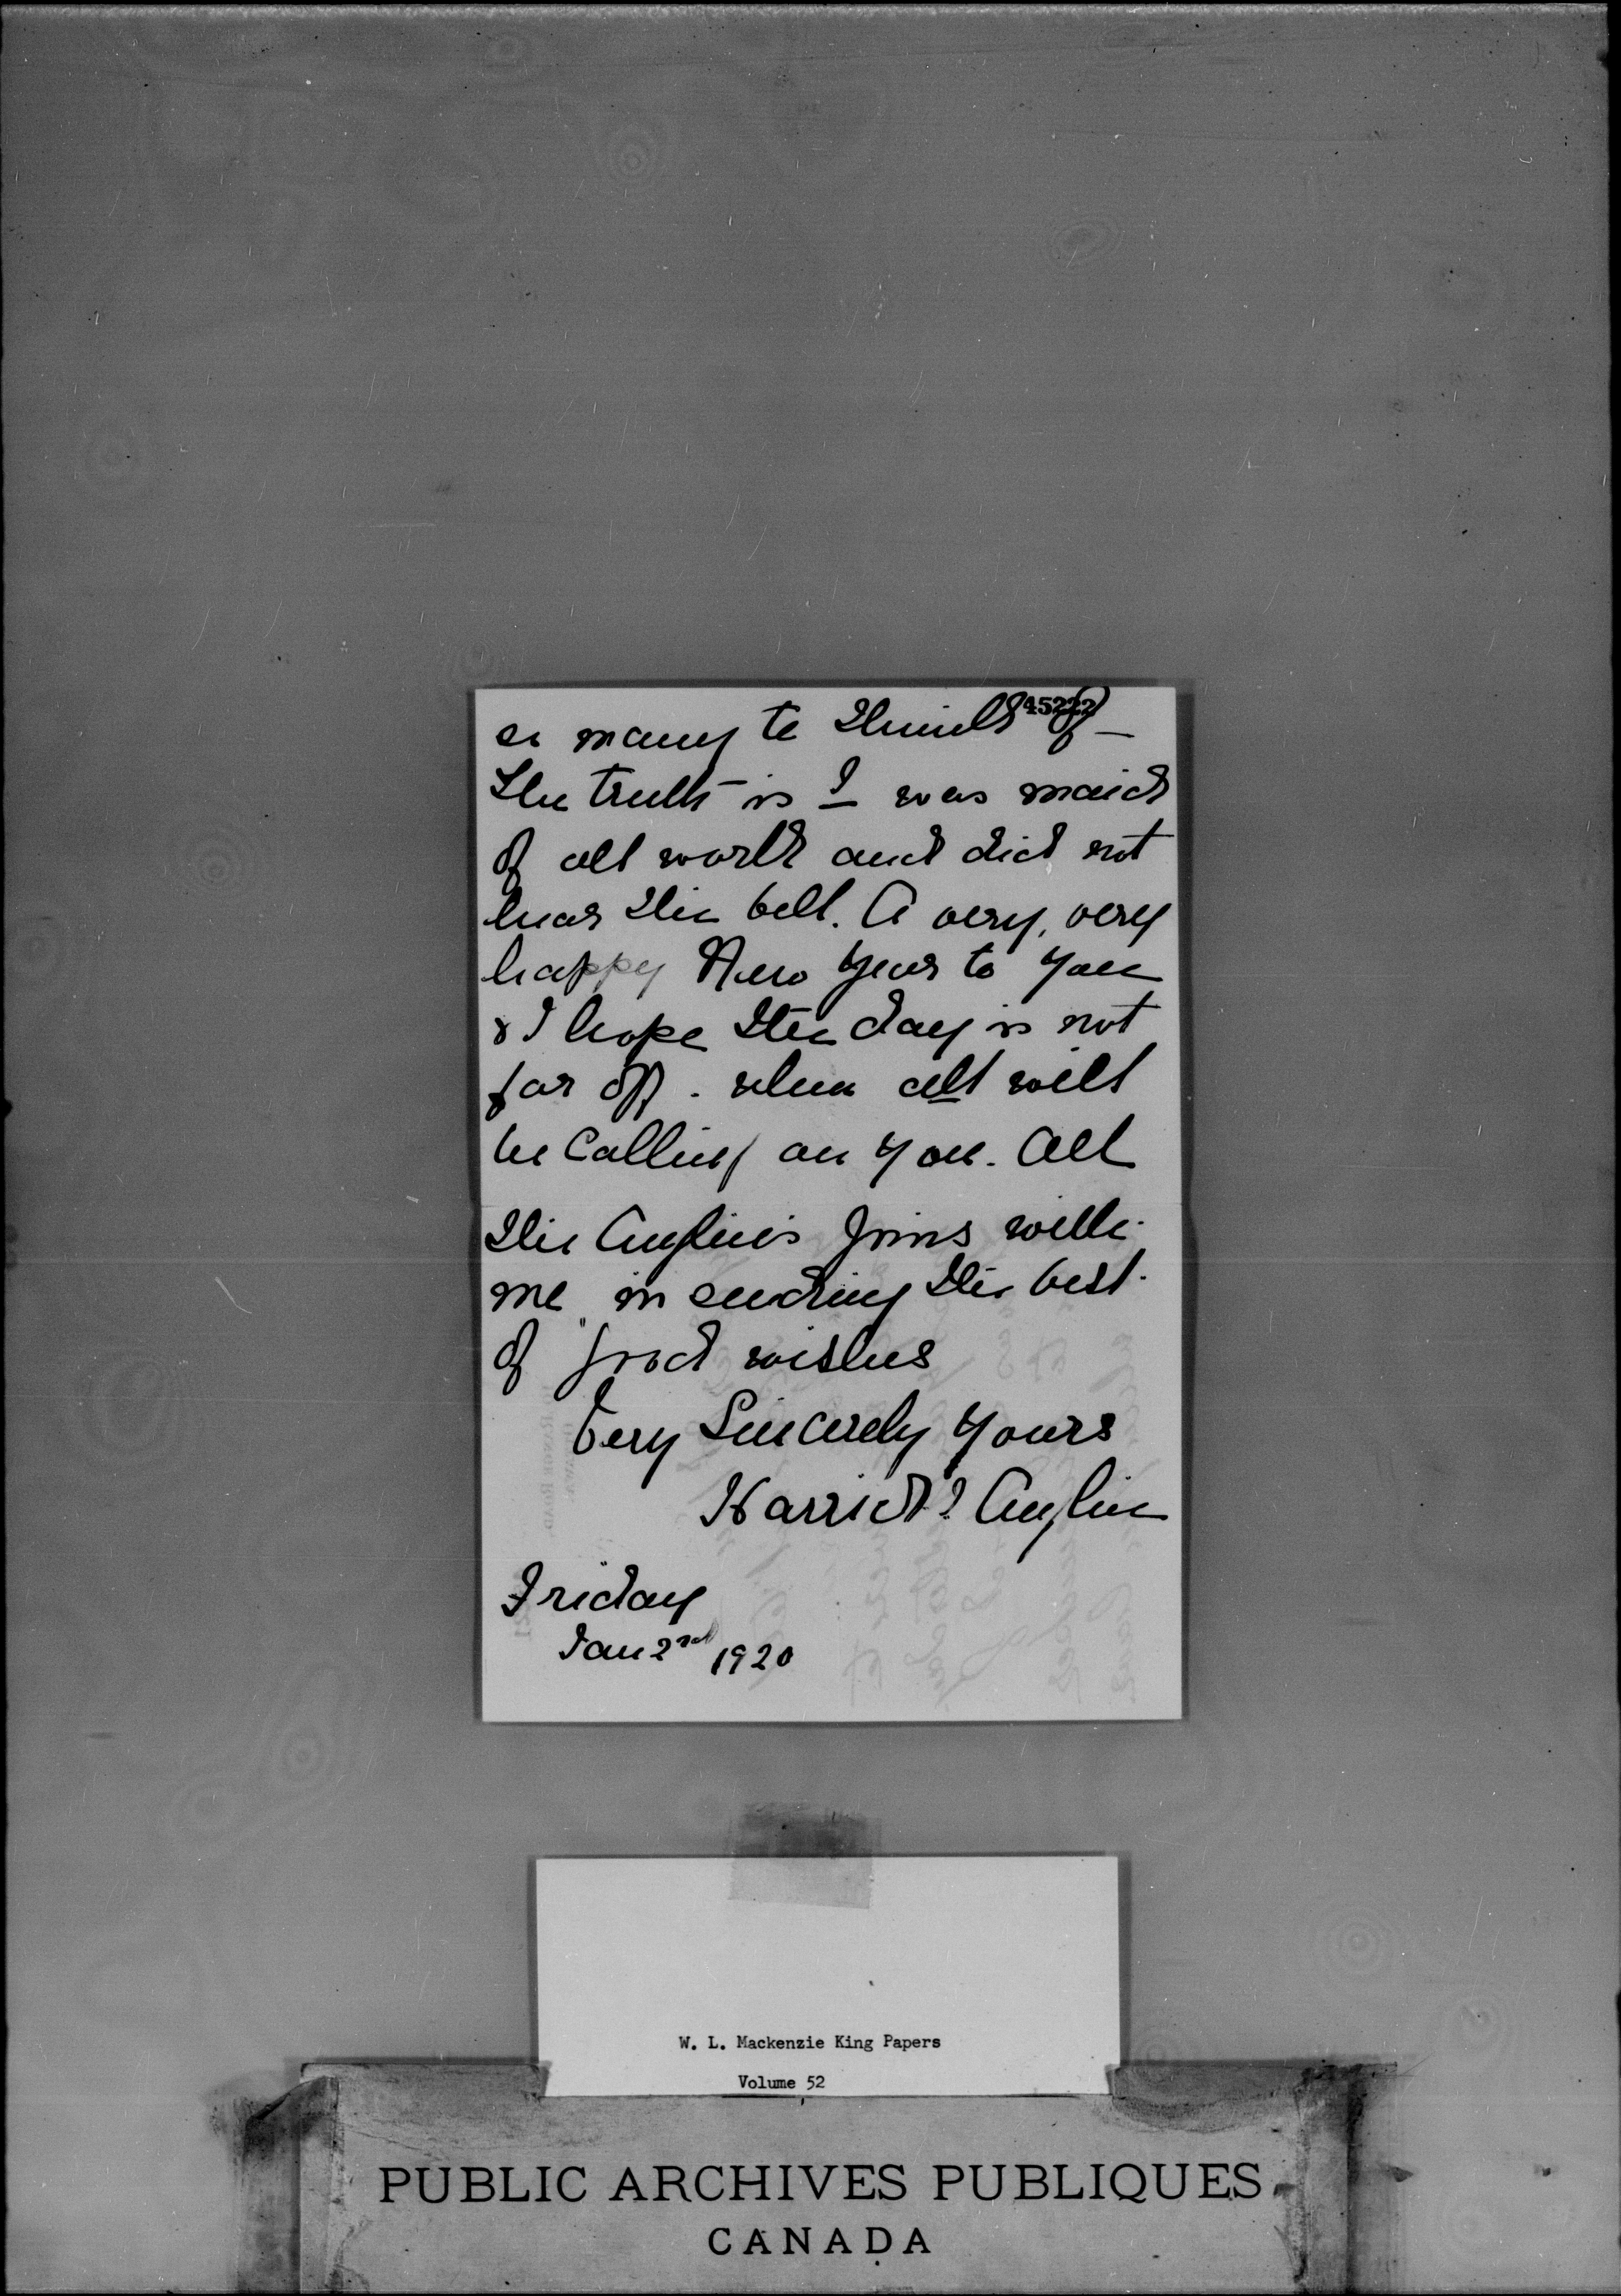 45222
so many to think of –
The truth is I was maid
of all work and did not
hear the bell. A very, very
happy New Year to you
& I hope the day is not
far off. when all will
be calling on you. All
the Anglin's joins with
me in sending the best
of good wishes
Very Sincerely Yours
Harriet I Anglin
Friday
Jan 2nd 1920
W. L. Mackenzie King Papers
Volume 52
PUBLIC ARCHIVES PUBLIQUES
CANADA